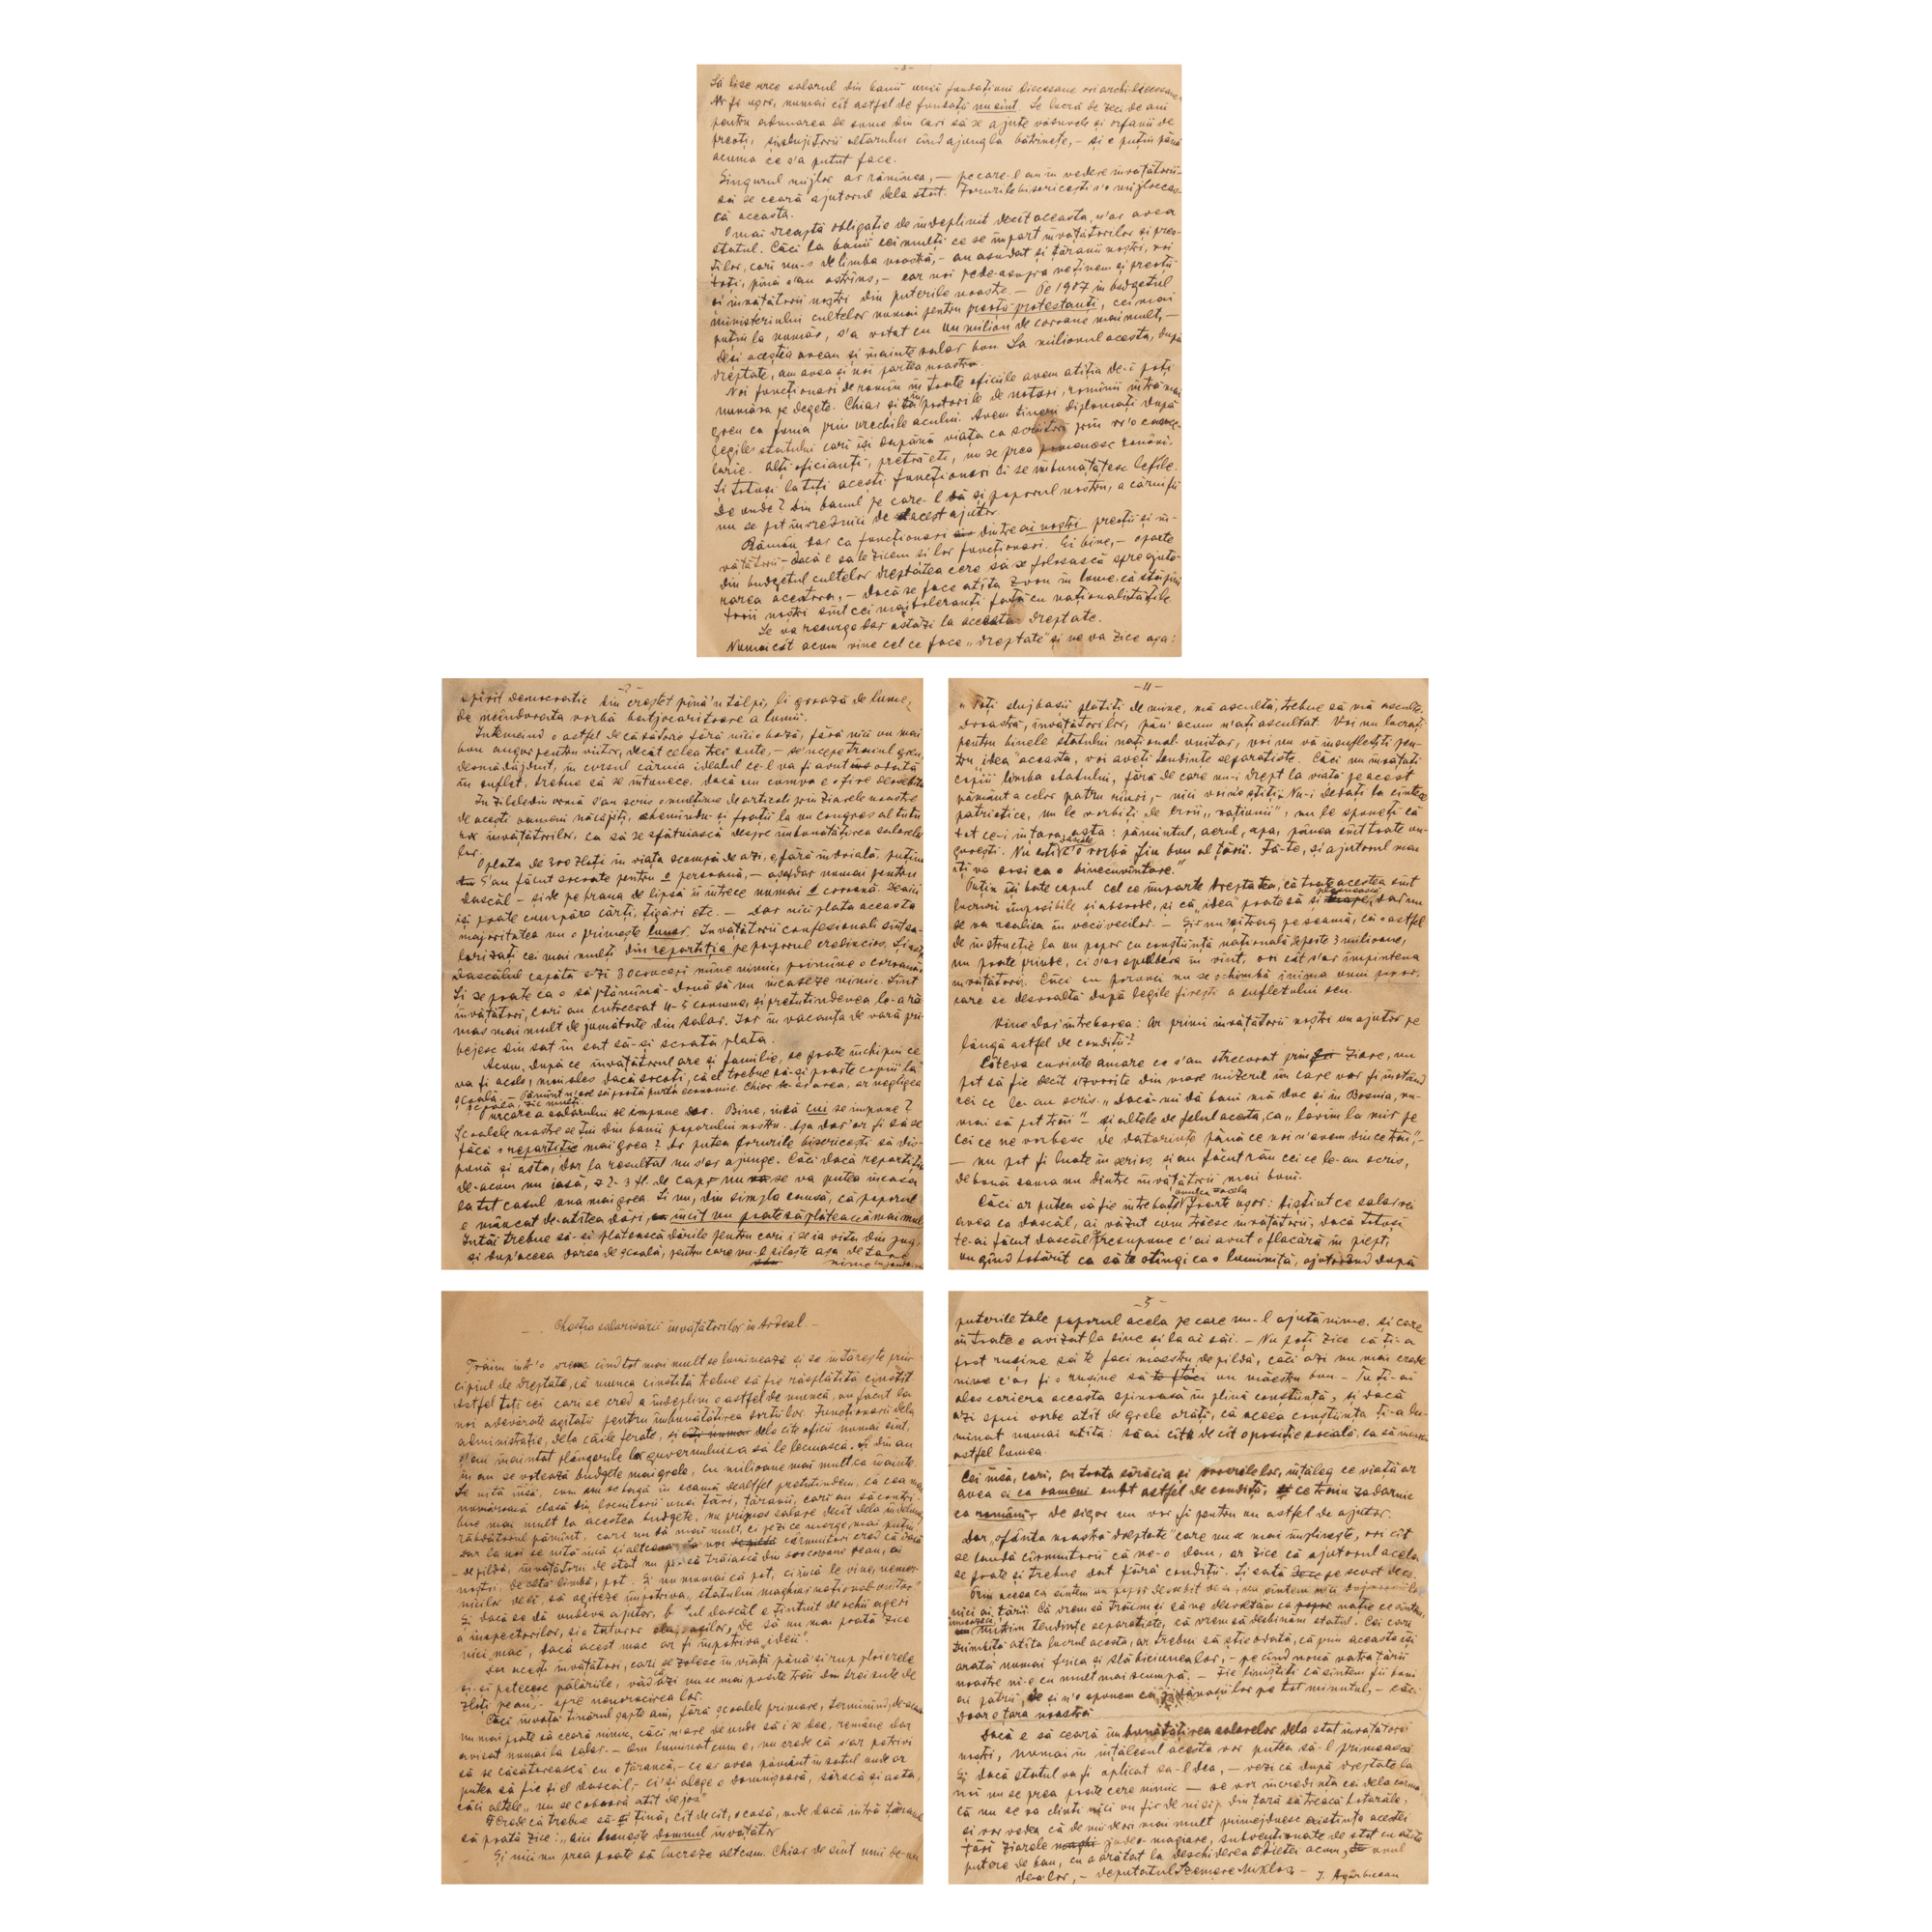 - . Chestia salarisării învățătorilor în Ardeal. -
Trăim într'o vreme cînd tot mai mult se luminează și se întărește prin-
cipiul de dreptate, că munca cinstită trebue să fie răsplătită cinstit
Astfel toți cei cari se cred a îndeplini o astfel de muncă, au făcut la
noi adevărate agitații pentru îmbunătățirea sorții lor. Funcționarii dela
administrație, dela căile ferate, și dela cîte oficii numai sînt,
și-au înaintat plângerile lor guvernului ca să le lecuiască. Și din an
în an se votează budgete mai grele, cu milioane mai mult ca înainte.
Se uită însă, cum nu se bagă în seamă dealtfel pretutindeni, că cea mai
numeroasă clasă din locuitorii unei țări, țăranii, cari au să contri-
bue mai mult la acestea budgete, nu primesc salare decît dela îndelung
răbdătorul pămînt, care nu dă mai mult, ci pe zi ce merge, mai puțin.
dar la noi se uită încă și
- de pildă, învățătorii de stat nu pot să trăiască din coroane pe an, ai
noștri, de altă limbă, pot. Și nu numai că pot, ci încă le vine, nemer-
nicilor de ei, să agiteze împotriva „statului maghiar național-unitar"
Și dacă se dă undeva ajutor, dascăl e țintuit de ochii ageri
a inspectorilor, și a tuturor slugoașilor, de să nu mai poată zice
nici „mac", dacă acest mac ar fi împotriva „ideii".
Dar acești învățători, cari se zolesc în viață până și rup ploierele
și-și petecesc pălăriile, văd că azi nu se mai poate trăi din trei sute de
zloți pe an, - spre nenorocirea lor.
Căci învață tinărul șapte ani, fără școalele primare, terminînd, de-acasă
nu mai poate să ceară nimic, căci n'are de unde să i se dee, rămâne dar
avizat numai la salar. - Om luminat cum e, nu crede că s'ar potrivi
să se căsătorească cu o țărancă, - ce ar avea pământ în satul unde ar
putea să fie și el dascăl, - ci-și alege o domnișoară, săracă și asta,
căci altele „nu se coboară atît de jos"
Crede că trebue să-și țină, cît de cît, o casă, unde dacă intră țăranul
să poată zice: „aici locuește domnul învățător
Și nici nu prea poate să lucreze altcum. Chiar de sînt unii de-un
spirit democratic din creștet pînă'n tălpi, li groază de lume,
de neîndurata vorbă batjocuritoare a lumii.
Întemeind o astfel de căsătorie fără nicio bază, fără nici un mai
bun augur pentru viitor, decât celea trei sute, - se'ncepe traiul greu,
desnădăjduit, în cursul căruia idealul ce-l va fi avut odată
în suflet, trebue să se întunece, dacă nu cumva e o fire deosebită
În zilele din urmă s'au scris o mulțime de articoli prin ziarele noastre
de acești oameni năcăjiți, chemîndu-și frații la un congres al tutu-
ror învățătorilor, ca să se sfătuiască despre îmbunătățirea salarelor
lor.
O plată de 300 zloți în viața scumpă de azi, e, fără îndoială, puțină
S'au făcut socoate pentru o persoană, - așadar numai pentru
dascăl - și de pe hrana de lipsă îi întrece numai 1 coroană. De aici
își poate cumpăra cărți, țigări etc. - Dar nici plata aceasta
majoritatea nu o primește lunar. Învățătorii confesionali sînt sa-
larizați cei mai mulți din repartiția pe poporul credincios. Și așa
Dascălul capătă azi 30 cruceri mîne nimic, poimîne o coroană.
Și se poate ca o săptămînă-două să nu încaseze nimic. Sînt
învățători, cari au cutreerat 4-5 comune, și pretutindenea le-a ră-
mas mai mult de jumătate din salar. Iar în vacanța de vară pri-
bejesc din sat în sat să-și scoată plata.
Acum, după ce învățătorul are și familie, se poate închipui ce
va fi acolo, mai ales dacă socoți, că el trebue să-și poarte copiii la
școală. - Pămînt n'are să poată purta economie. Chiar de-ar avea, ar negligea
școala, zic mulți.
Urcarea salarului se impune dar. Bine, însă cui se impune?
Școalele noastre se țin din banii poporului nostru. Așa dar'ar fi să se
facă o repartiție mai grea? Ar putea forurile bisericești să dis-
pună și asta, dar la rezultat nu s'ar ajunge. Căci dacă repartiția
de-acum nu iasă, a 2-3 fl. de cap, nu se va putea încasa
la tot casul una mai grea. Și nu, din simpla causă, că poporul
e mâncat de-atîtea dări, încît nu poate să plătească mai mult
Întâi trebue să-și plătească dările pentru cari i se ia vita din jug,
și dup'aceea darea de școală, pentru care nu-l silește așa de tare
nime
- 3 -
Să li se urce salarul din banii unei fundațiuni diecesane ori archidiecesane.
Ar fi ușor, numai cît astfel de fundații nu sînt. Se lucră de zeci de ani
pentru adunarea de sume din cari să se ajute văduvele și orfanii de
preoți, și slujitorii altarului cînd ajung la bătrînețe, - și e puțin până
acuma ce s'a putut face.
Singurul mijloc ar rămînea, - pe care-l au în vedere învățătorii -
să se ceară ajutorul dela stat. Forurile bisericești s'o mijlocea-
scă aceasta.
O mai dreaptă obligație de îndeplinit decît aceasta, n'ar avea
statul. Căci la banii cei mulți ce se împart învățătorilor și preo-
ților, cari nu-s de limba noastră, - au asudat și țăranii noștri, noi
toți, pînă s'au ostrîns, - ear noi pede-asupra ne ținem și preoții
și învățătorii noștri din puterile noaste. - Pe 1907 în budgetul
ministeriului cultelor numai pentru preoții protestanți, cei mai
puțini la număr, s'a votat cu un milion de coroane mai mult, -
deși aceștia aveau și înainte salar bun. La milionul acesta, după
dreptate, am avea și noi partea noastră.
Noi funcționari de român în toate oficiile avem atîția de-i poți
număra pe degete. Chiar și în posturile de notari, românii întră mai
greu ca funia prin urechile acului. Avem tineri diplomați după
legile statului cari își supără viața ca scriitori prin vr'o cance-
larie. Alți oficianți, pretră eti, nu se prea pomenesc români.
Și totuși la toți acești funcționari li se îmbunătățesc lefile.
De unde? Din banul pe care-l dă și poporul nostru, a cărui fii
nu se pot învrednici de acest ajutor.
Rămân dar ca funcționari dintre ai noștri preoții și în-
vățătorii, - dacă e sa le zicem și lor funcționari. Ei bine, - o parte
din budgetul cultelor dreptatea cere să se folosască spre ajuto-
rarea acestora, - dacă se face atîta zvon în lume, că stăpîni-
torii noștri sînt cei mai toleranți față cu naționalitățile.
Se va recurge dar astăzi la aceasta dreptate.
Numai cât acum vine cel ce face „dreptate" și ne va zice așa:
- 4 -
„ Toți slujbașii plătiți de mine, mă ascultă, trebue să mă asculte.
Dvoastră, învățătorilor, pân' acum n'ați ascultat. Voi nu lucrați
pentru binele statului național-unitar, voi nu vă însuflețiți pen-
tru „idea" aceasta, voi aveți tendințe separatiste. Căci nu învățați
copiii limba statului, fără de care nu-i drept la viață pe acest
pământ a celor patru rîuri, - nici voi nu o știți. Nu-i dedați la cîntece
patriotice, nu le vorbiți de eroii „națiunii", nu le spuneți că
tot ce-i în țara asta: pămîntul, aerul, apa, pânea sînt toate un-
gurești. Nu ești, dascăle, c'o vorbă fiu bun al țării. Fă-te, și ajutorul meu
îți va sosi ca o binecuvîntare."
Puțin își bate capul cel ce împarte dreptatea, că toate acestea sînt
lucruri imposibile și absurde, și că „idea" poate să și dar nu
se va realisa în vecii vecilor. - Și nu-și trag pe seamă, că o astfel
de instrucție la un popor cu conștiință națională de peste 3 milioane,
nu poate prinde, ci s'ar spulbera în vînt, ori cât s'ar împintena
învățătorii. Căci cu porunci nu se schimbă inima unui popor,
care se desvoaltă după legile firești a sufletului seu.
Vine dar întrebarea: Ar primi învățătorii noștri un ajutor pe
lângă astfel de condiții?
Câteva cuvinte amare ce s'au strecurat prin ziare, nu
pot să fie decît izvorite din mare mizerul în care vor fi înotând
cei ce le-au scris. „Dacă-mi dă bani mă duc și în Bosnia, nu-
mai să pot trăi" - și altele de felul acesta, ca „lovim la mir pe
cei ce ne vorbesc de datorințe până ce noi n'avem din ce trăi", -
- nu pot fi luate în serios, și au făcut rău cei ce le-au scris,
de bună sama nu dintre învățătorii mai buni.
Căci ar putea să fie întrebați unii ca acela foarte ușor: ai știut ce salar vei
avea ca dascăl, ai văzut cum trăesc învățătorii, dacă totuși
te-ai făcut dascăl presupune c'ai avut o flacără în piept,
un gînd hotărît ca să te stingi ca o luminiță, ajutorînd după
- 5 -
puterile tale poporul acela pe care nu-l ajută nime. și care
în toate e avizat la sine și la ai săi. - Nu poți zice că ți-a
fost rușine să te faci maestru de pildă, căci azi nu mai crede
nime c'ar fi o rușine să un măestru bun - Tu ți-ai
ales cariera aceasta spinoasă în plină conștiință, și dacă
azi spui vorbe atît de grele arăți, că aceea conștiință ți-a lu-
minat numai atîta: să ai cît de cît o poziție socială, ca să
astfel lumea.
Cei însă, cari, cu toată sărăcia și nevoile lor, înțăleg ce viață ar
avea ei ca oameni subt astfel de condiții, ce traiu zadarnic
ca români, - de sigur nu vor fi pentru un astfel de ajutor.
Dar „sfânta noastră dreptate" care nu se mai împlinește, ori cît
se laudă cîrmuitorii că ne-o dau, ar zice că ajutorul acela
se poate și trebue dat fără condiții. Și iată pe scurt de ce.
Prin aceea ca sîntem un popor deosebit de ei, nu sîntem nici
nici ai țării. Că vrem să trăim și să ne desvoltăm ca nație
nutrim tendințe separatiste, că vrem să desbinăm statul. Cei cari
trîmbiță atîta lucrul acesta, ar trebui să știe odată, că prin aceasta își
arată numai frica și slăbiciunea lor, - pe cînd nouă vatra țării
noastre ni-e cu mult mai scumpă. - Fie liniștiți că sîntem fii buni
ai patriei, și n'o spunem ca jidănașii lor pe tot minutul, - căci
doar e țara noastră
Dacă e să ceară îmbunătățirea salarelor dela stat învățătorii
noștri, numai în înțălesul acesta vor putea să-l primească
Și dacă statul va fi aplicat sa-l dea, - vezi că după dreptate la
noi nu se prea poate cere nimic - se vor încredința cei dela cârmă
că nu se va clinti nici un fir de nisip din țară să treacă hotarăle,
și vor vedea că de mii de ori mai mult primejduesc existința acestei
țări ziarele judeo-magiare, subvenționate de stat cu atîta
putere de ban, cu a arătat la deschiderea dietei acum, unul
de-a lor, - deputatul Szemere Miklos. - I. Agârbiceanu